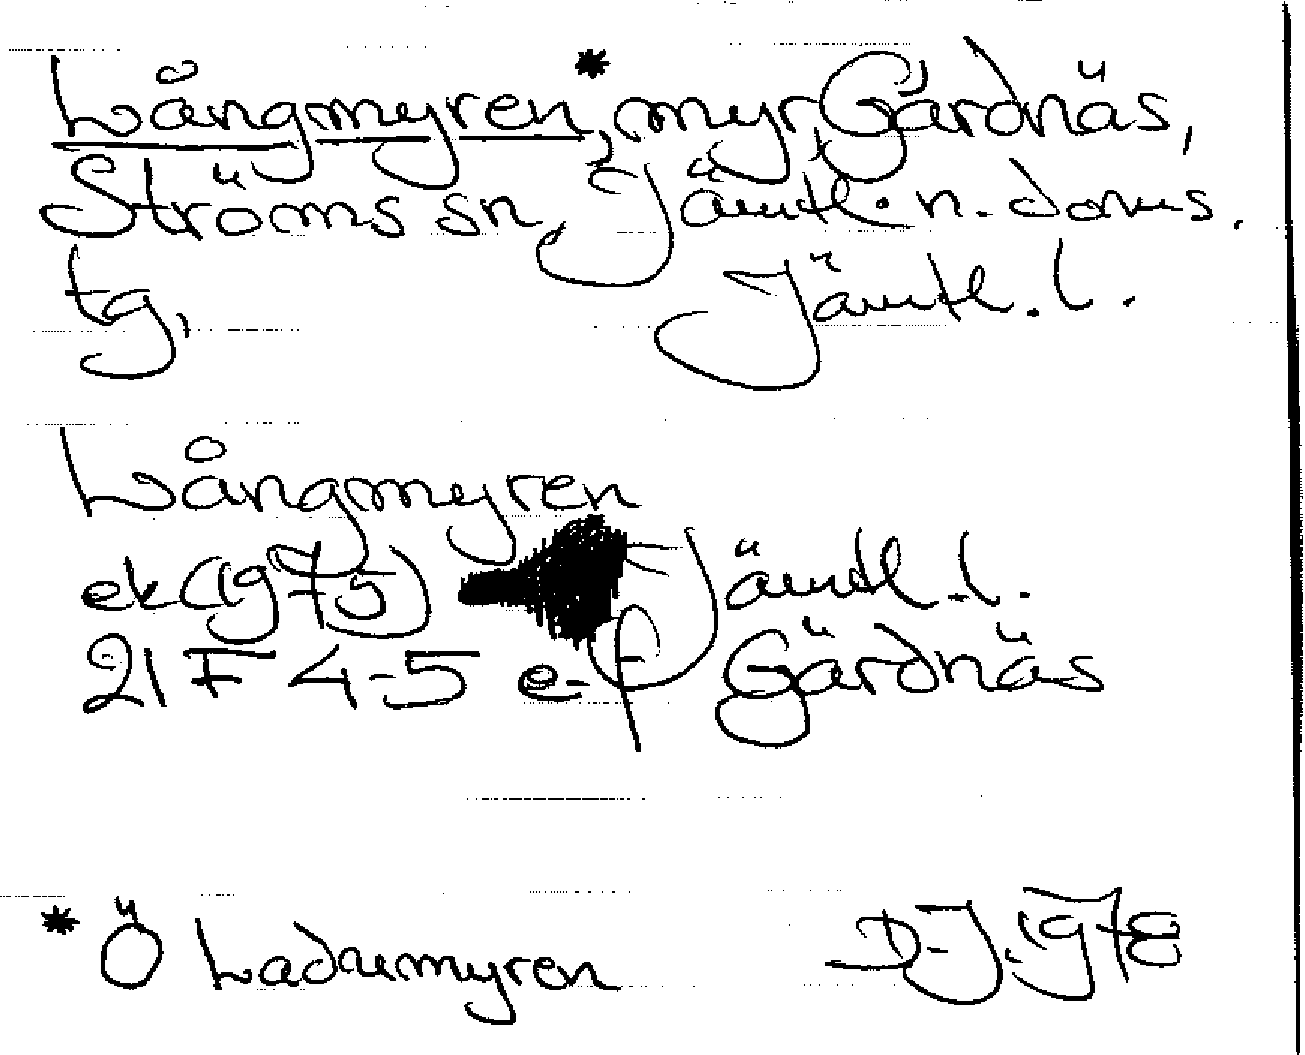 Långmyren*, myr, Gärdnäs,
Ströms sn, Jämtl. n. doms.
tg, Jämtl. l.
Långmyren
ek (1975) Jämtl. l.
21 F 4-5 e-f Gärdnäs
* Ö Ladumyren D-J. 1978